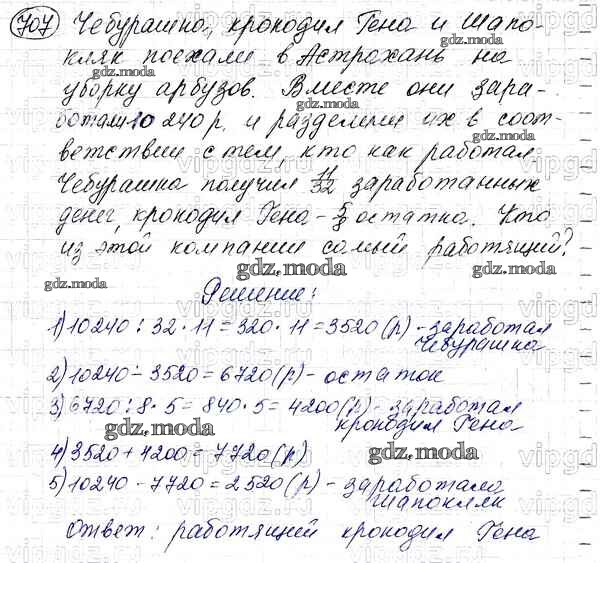 707 Чебурашка, крокодил Гена и Шапо-
кляк поехали в Астрахань на
уборку арбузов. Вместе они зара-
ботали 10 240 р. и разделили их в соот-
ветствии с тем, кто как работал.
Чебурашка получил 11/32 заработанных
денег, крокодил Гена - 5/8 остатка. Кто
из этой компании самый работящий?
Решение:
1) 10240 : 32 · 11 = 320 · 11 = 3520 (р) - заработал
Чебурашка
2) 10240 - 3520 = 6720 (р) - остаток
3) 6720 : 8 · 5 = 840 · 5 = 4200 (р) - заработал
крокодил Гена
4) 3520 + 4200 = 7720 (р)
5) 10240 - 7720 = 2520 (р) - заработала
Шапокляк
Ответ: работящий крокодил Гена